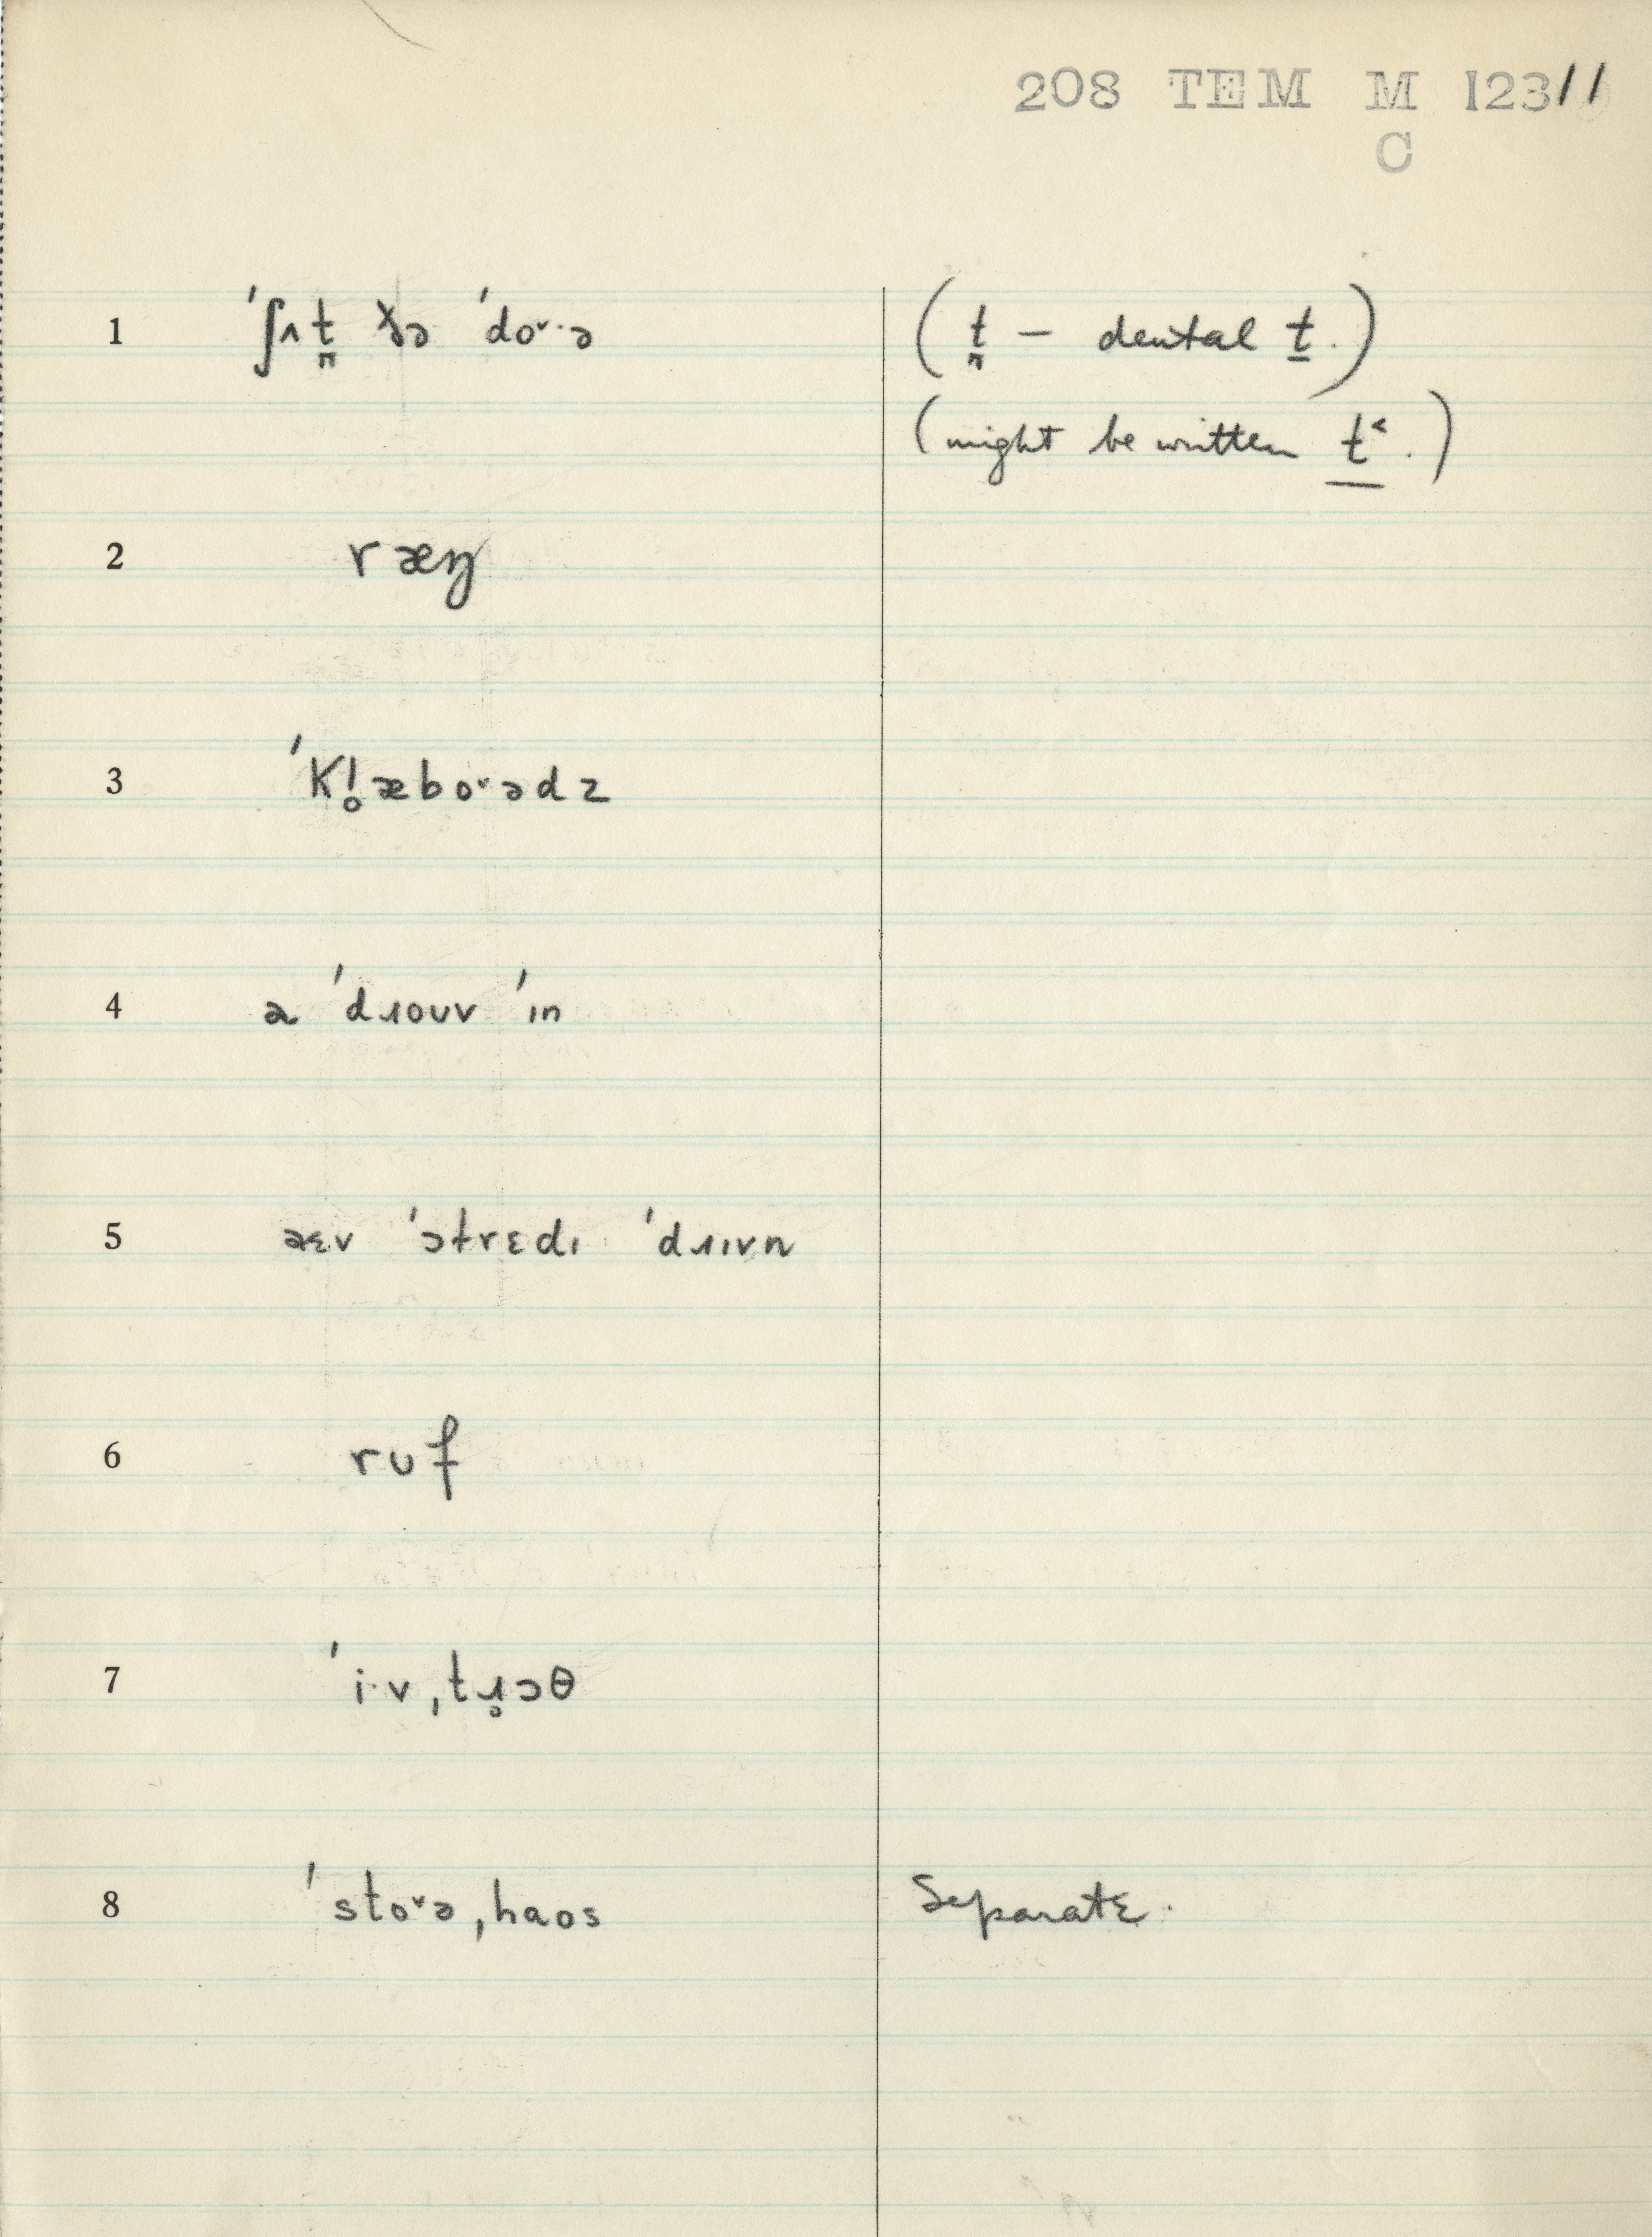 208 TEM M 123//
C
1 ˈʃʌt̪ ðə ˈdoˇ·ə (t̪ – dental t.)
(might be written t˂.)
2 ræŋ
3 ˈKl̥æboˇədz
4 ə ˈdɹouv ˈɪn
5 æɛv ˈɔtrɛdɪ ˈdɹɪvn
6 rᴜf
7 ˈi·vˌtɹ̥ɔθ
8 ˈstoˇəˌhaos Separate.